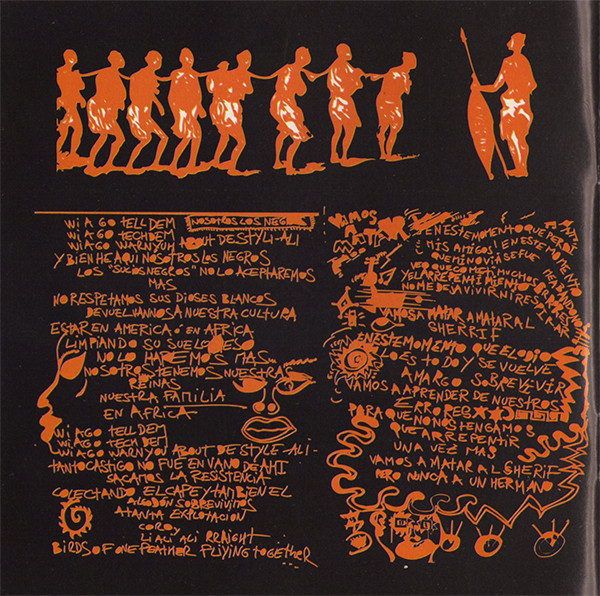 WI A GO TELL DEM
NOSOTROS LOS NEGROS
WI A GO TECH DEM
WI A GO WARN YUH ABOUT DE STYLI-ALI
Y BIEN HE AQUI NOSOTROS LOS NEGROS
LOS "SUCIOS NEGROS" NO LO ACEPTAREMOS
MAS
NO RESPETAMOS SUS DIOSES BLANCOS
DEVUELVANNOS A NUESTRA CULTURA
ESTAR EN AMERICA Ó EN AFRICA
LIMPIANDO SU SUELO ESO
NO LO HAREMOS MAS...
NOSOTROS TENEMOS NUESTRAS
REINAS
NUESTRA FAMILIA
EN AFRICA
WI A GO TELL DEM
WI A GO TECH DEM
WI A GO WARN YOU ABOUT DE STYLE-ALI-
TANTO CASTIGO NO FUE EN VANO DE AHI
SACAMOS LA RESISTENCIA
COLECTANDO EL CAFE Y TAMBIEN EL
ALGODON SOBREVIVIMOS
A TANTA EXPLOTACION
CORO Y
LI ALI ALI RRAIGHT
BIRDS OF ONE FEATHER FLIYING TOGETHER
VAMOS
A
EN ESTE MOMENTO QUE PERDI
MIS AMIGOS! EN ESTE MOMENTO
QUE MI NOVIA SE FUE
VEO QUE COMETI MUCHOS
Y EL ARREPENTIMIENTO
NO ME DEJA VIVIR NI RESPIRAR
VAMOS A MATAR A MATAR AL
SHERRIF
EN ESTE MOMENTO QUE EL ODIO
LO ES TODO Y SE VUELVE
AMARGO SOBREVIVIR
VAMOS A APRENDER DE NUESTROS
ERRORES
PARA QUE NO NOS TENGAMOS
QUE ARREPENTIR
UNA VEZ MAS
VAMOS A MATAR AL SHERIF
PERO NUNCA A UN HERMANO